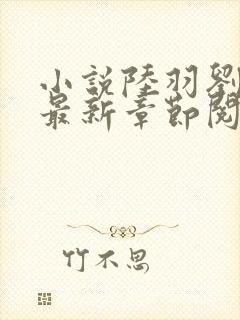 小説陸羽劉
最新章節閱
竹不思